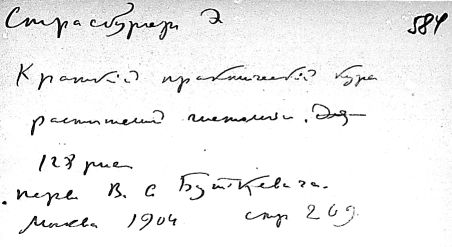 Страсбургер Э 584
Краткий практический курс
растительной гистологии.
128 рис
перев В. С Буткевича.
Москва 1904 стр 269